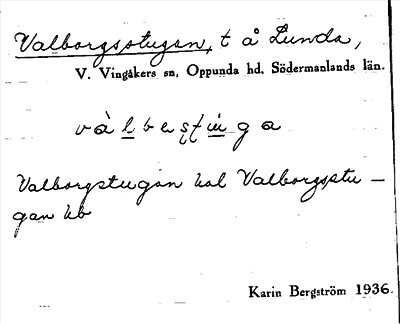 Valborgsstugan, t å Lunda,
V. Vingåkers sn, Oppunda hd. Södermanlands län.
Valborgstugan kal Valborgsstu –
gan kb
Karin Bergström 1936.